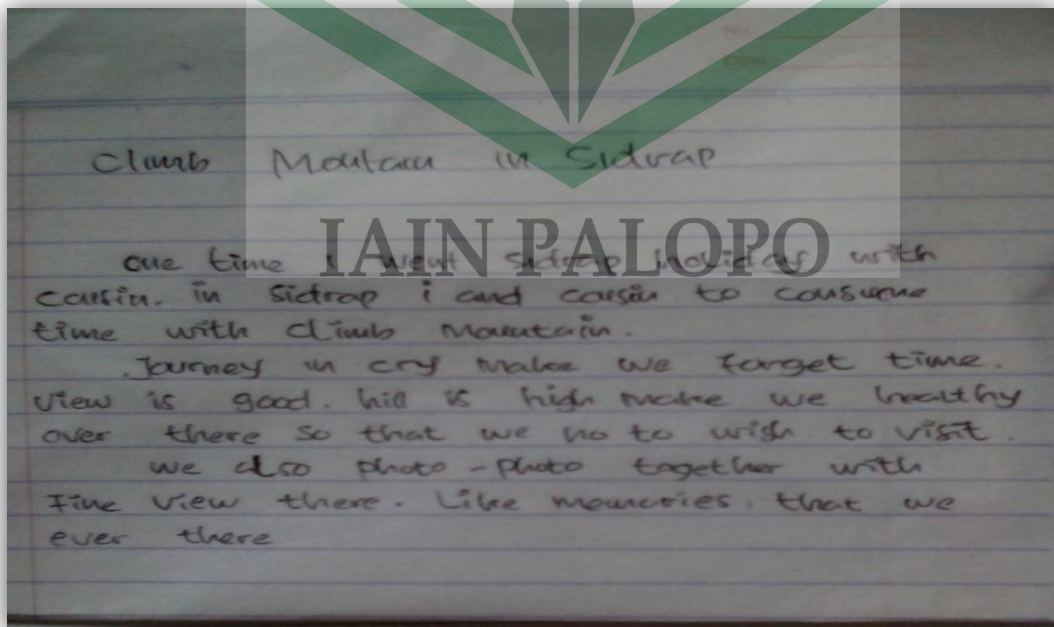 No
Date
Climb Moutain in Sidrap
IAIN PALOPO
one time i went sidrap holiday with
cousin. in Sidrap i and cousin to consume
time with climb Mountain.
Journey in cry make we forget time.
View is good. hill is high make we healthy
over there so that we no to wish to visit.
we also photo - photo together with
Fine View there. Like memories. that we
ever there